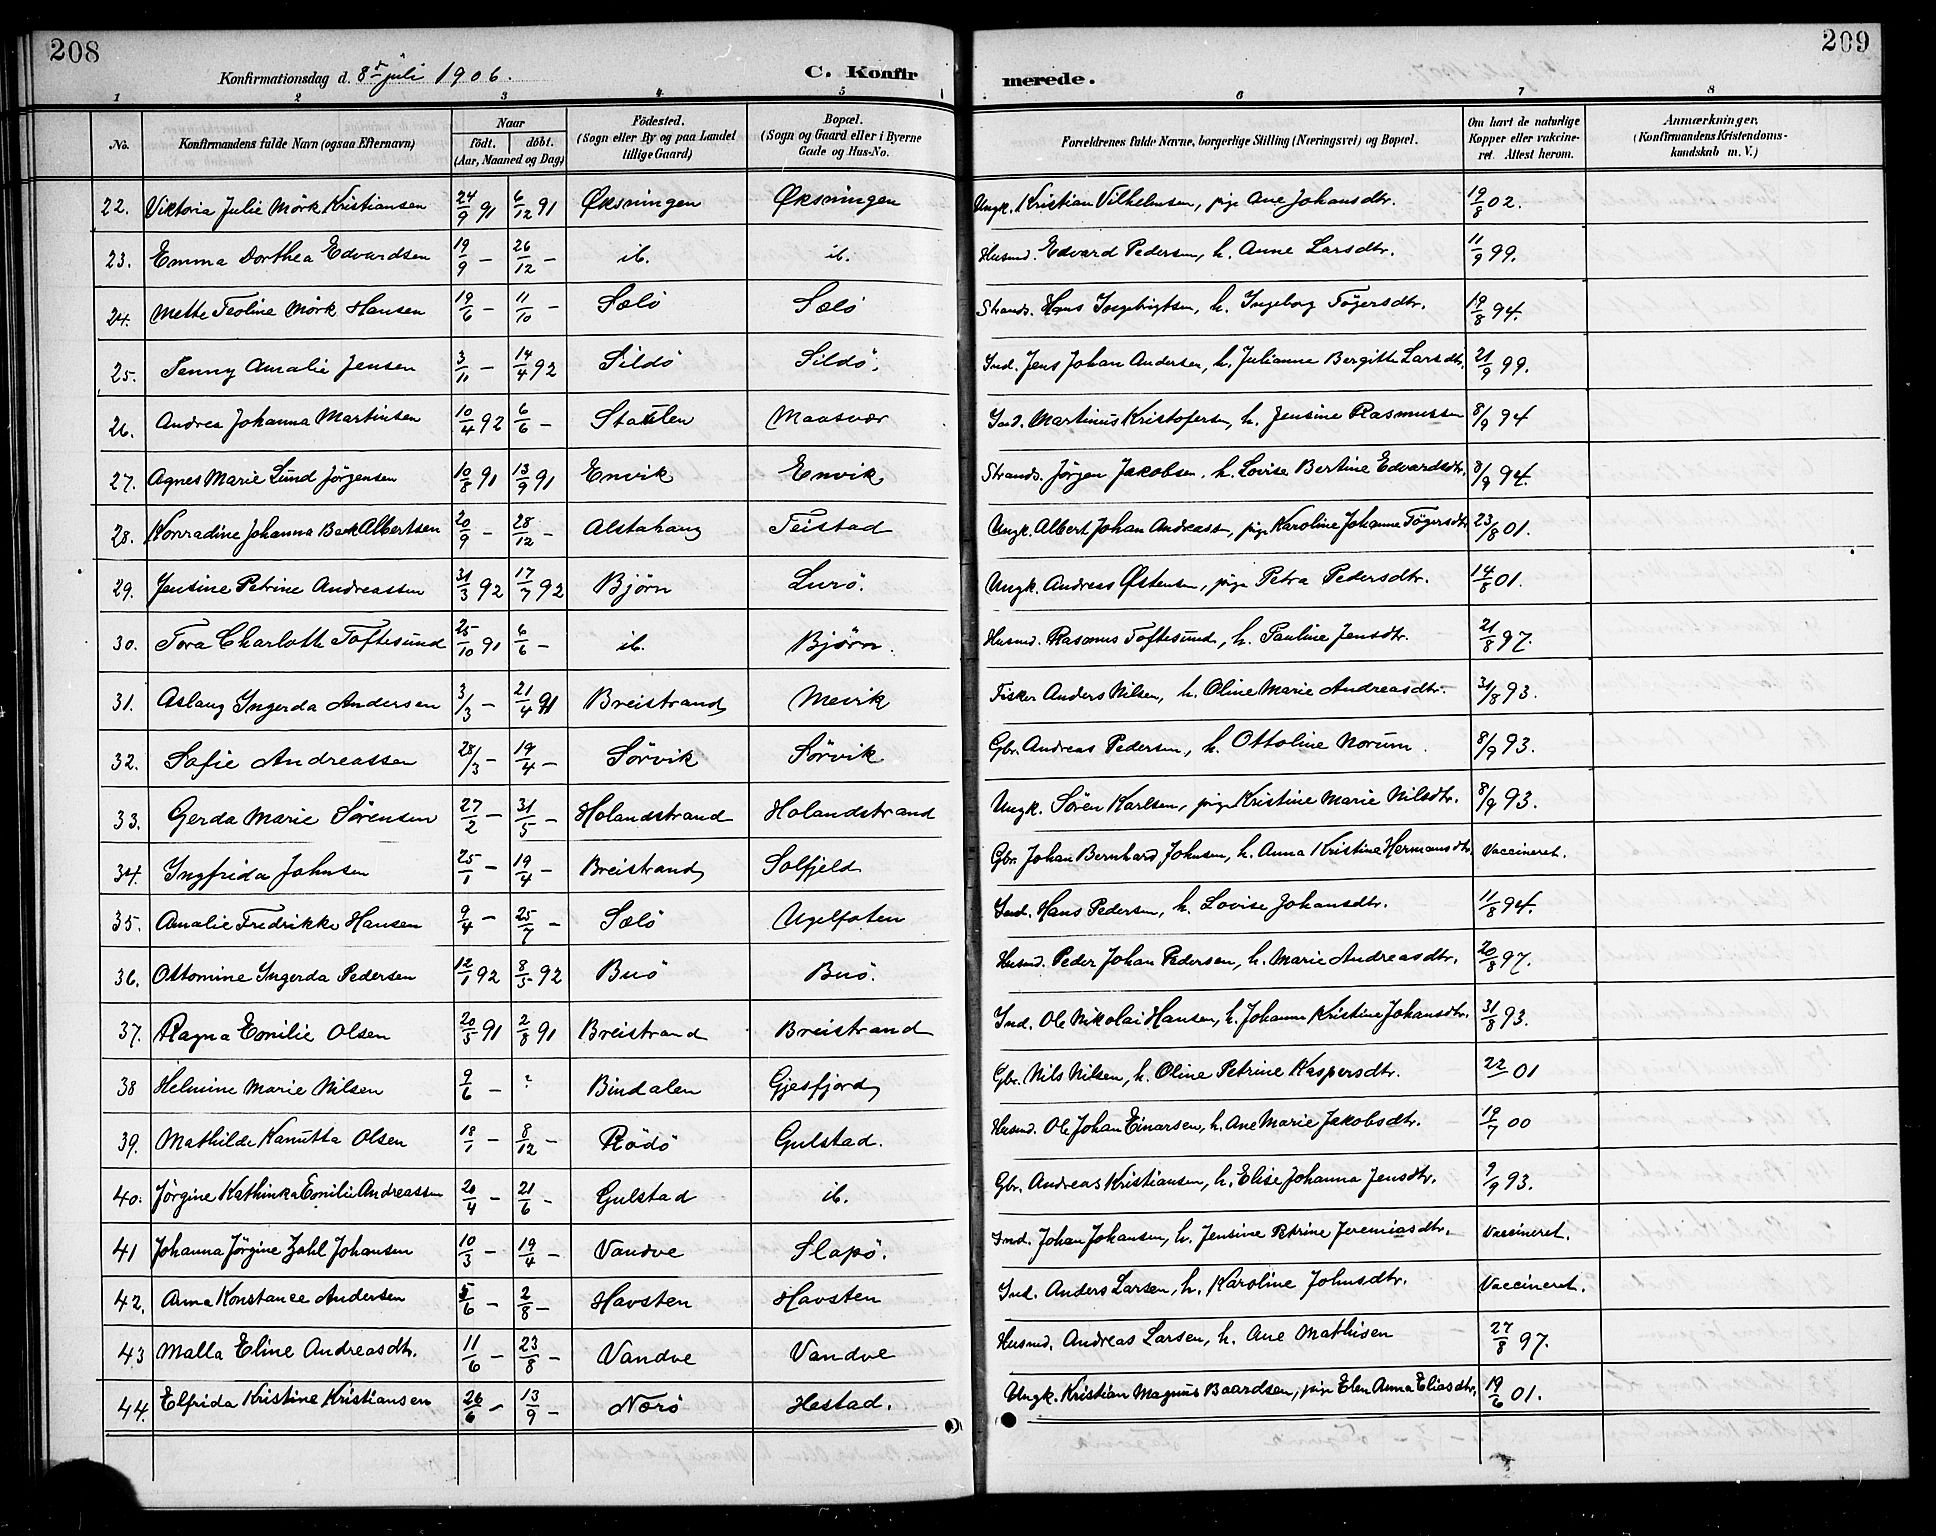 208
209
Konfirmationsdag d. 8de juli 1906.
C. Konfirmerede.
1 2 3 4 5 6 7 8
No.
Konfirmandens fulde Navn (ogsaa Efternavn)
Naar
födt. döbt.
(Aar, Maaned og Dag)
Födested.
(Sogn eller By og paa Landet tillige Gaard)
Bopæl.
(Sogn og Gaard eller i Byerne Gade og Hus-No.
Forældrenes fulde Navne, borgerlige Stilling (Næringsvei) og Bopæl.
Om havt de naturlige Kopper eller vakcineret. Attest herom.
Anmærkninger.
(Konfirmandens Kristendomskundskab m. V.)
22. Viktoria Julie Mörk Kristiansen 24/9 91 6/12 91 Øksningen Øksningen Ungk. Kristian Vilhelmsen, pige Ane Johansdtr. 19/8 02.
23. Emma Dorthea Edvardsen 19/9 – 26/12 – ib. ib. Husmd. Edvard Pedersen, h. Anne Larsdtr. 11/9 99.
24. Mette Teoline Mörk Hansen 19/6 – 11/10 – Sælö Sælö Strands. Hans Ingebrigtsen, h. Ingeborg Tögersdtr. 19/8 94.
25. Jenny Amalie Jensen 3/11 – 14/4 92 Sildö Sildö. Ind. Jens Johan Andersen, h. Julianne Bergitte Larsdtr. 21/9 99.
26. Andrea Johanna Martinsen 10/4 92 6/6 – Maasvær Ind. Martinus Kristofersen, h. Jensine Rasmussen 8/9 94
27. Agnes Marie Lund Jörgensen 10/8 91 13/9 91 Envik Envik Strands. Jörgen Jakobsen, h. Lovise Bertine Edvardsdtr. 8/9 94.
28. Konradine Johanna Bek Albertsen 20/9 – 28/12 – Alstahaug Teistad Ungk. Albert Johan Andreassen, pige Karoline Johanne Tögersdtr 23/8 01.
29. Jensine Petrine Andreassen 31/3 92 17/7 92 Björn Lurö. Ungk. Andreas Østensen, pige Petra Pedersdtr. 14/8 01.
30. Tora Charlotte Toftesund 25/10 91 6/6 – ib. Björn. Husmd. Rasmus Toftesund, h. Pauline Jensdtr. 21/8 97.
31. Aslaug Ingerda Andersen 3/3 – 21/4 91 Breistrand Mevik Fisker Anders Nilsen, h. Oline Marie Andreasdtr. 31/8 93.
32. Safie Andreassen 28/3 – 19/4 – Sörvik Sörvik Gbr. Andreas Pedersen, h. Ottoline Norum. 8/9 93.
33. Gerda Marie Sörensen 27/2 – 31/5 – Holandstrand Holandstrand Ungk. Sören Karlsen, pige Kristine Marie Nilsdtr. 8/9 93.
34. Ingfrida Johnsen 25/1 – 19/4 – Breistrand Solfjeld Gbr. Johan Bernhard Johnsen, h. Anna Kristine Hermansdtr. Vaccineret.
35. Amalie Fredrikke Hansen 9/4 – 25/7 – Sælö Ugelfoten Ind. Hans Pedersen, h. Lovise Johansdtr. 11/8 94.
36. Ottomine Ingerda Pedersen 12/1 92 8/5 92 Buö Buö. Husmd. Peder Johan Pedersen, h. Marie Andreasdtr. 20/8 97.
37. Ragna Emilie Olsen 20/5 91 2/8 91 Breistrand Breistrand Ind. Ole Nikolai Hansen, h. Johanne Kristine Johansdtr. 31/8 93.
38 Helmine Marie Nilsen 9/6 – ? Bindalen Gjesfjord Gbr. Nils Nilsen, h. Oline Petrine Kaspersdtr. 22/ 01
39. Mathilde Kanutta Olsen 18/1 – 8/12 – Rödö Gulstad. Husmd. Ole Johan Einarsen, h. Ane Marie Jakobsdtr. 19/7 00
40. Jörgine Kathinka Emilie Andreassen 20/4 – 21/6 – Gulstad ib. Gbr. Andreas Kristiansen, h. Elise Johanna Jensdtr. 9/9 93.
41 Johanna Jörgine Zahl Johansen 10/3 – 19/4 – Vandve Slapö. Ind. Johan Johansen, h. Jensine Petrine Jeremiasdtr. Vaccineret.
42. Anna Konstance Andersen 5/6 – 2/8 – Havsten Havsten Ind. Anders Larsen, h. Karoline Johnsdtr. Vaccineret.
43 Malla Eline Andreasdtr. 11/6 – 23/8 – Vandve Vandve Husmd. Andreas Larsen, h. Ane Mathisen 27/8 97.
44. Elfrida Kristine Kristiansen 26/6 – 13/9 – Nærö Hestad. Ungk. Kristian Magnus Baardsen, pige Elen Anna Eliasdtr. 19/6 01.